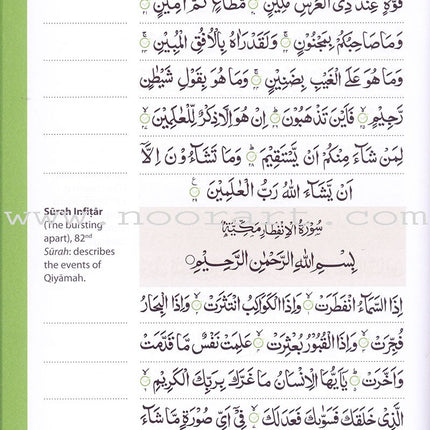 قُوَّةٍ عِنْدَ ذِى الْعَرْشِ مَكِيْنٍ ۝٢٠ مُطَاعٍ ثَمَّ اَمِيْنٍ ۝٢١
وَمَا صَاحِبُكُمْ بِمَجْنُوْنٍ ۝٢٢ وَلَقَدْ رَاٰهُ بِالْاُفُقِ الْمُبِيْنِ ۝٢٣
وَمَا هُوَ عَلَى الْغَيْبِ بِضَنِيْنٍ ۝٢٤ وَمَا هُوَ بِقَوْلِ شَيْطٰنٍ
رَّجِيْمٍ ۝٢٥ فَاَيْنَ تَذْهَبُوْنَ ۝٢٦ اِنْ هُوَ اِلَّا ذِكْرٌ لِّلْعٰلَمِيْنَ ۝٢٧
لِمَنْ شَآءَ مِنْكُمْ اَنْ يَّسْتَقِيْمَ ۝٢٨ وَمَا تَشَآءُوْنَ اِلَّآ
اَنْ يَّشَآءَ اللّٰهُ رَبُّ الْعٰلَمِيْنَ ۝٢٩
Sūrah Infiṭār
(The bursting
apart), 82nd
Sūrah: describes
the events of
Qiyāmah.
سُوْرَةُ الْاِنْفِطَارِ مَكِّيَّةٌ
بِسْمِ اللّٰهِ الرَّحْمٰنِ الرَّحِيْمِ
اِذَا السَّمَآءُ انْفَطَرَتْ ۝١ وَاِذَا الْكَوَاكِبُ انْتَثَرَتْ ۝٢ وَاِذَا الْبِحَارُ
فُجِّرَتْ ۝٣ وَاِذَا الْقُبُوْرُ بُعْثِرَتْ ۝٤ عَلِمَتْ نَفْسٌ مَّا قَدَّمَتْ
وَاَخَّرَتْ ۝٥ يٰٓاَيُّهَا الْاِنْسَانُ مَا غَرَّكَ بِرَبِّكَ الْكَرِيْمِ ۝٦
الَّذِىْ خَلَقَكَ فَسَوّٰىكَ فَعَدَلَكَ ۝٧ فِىْٓ اَىِّ صُوْرَةٍ مَّا شَآءَ